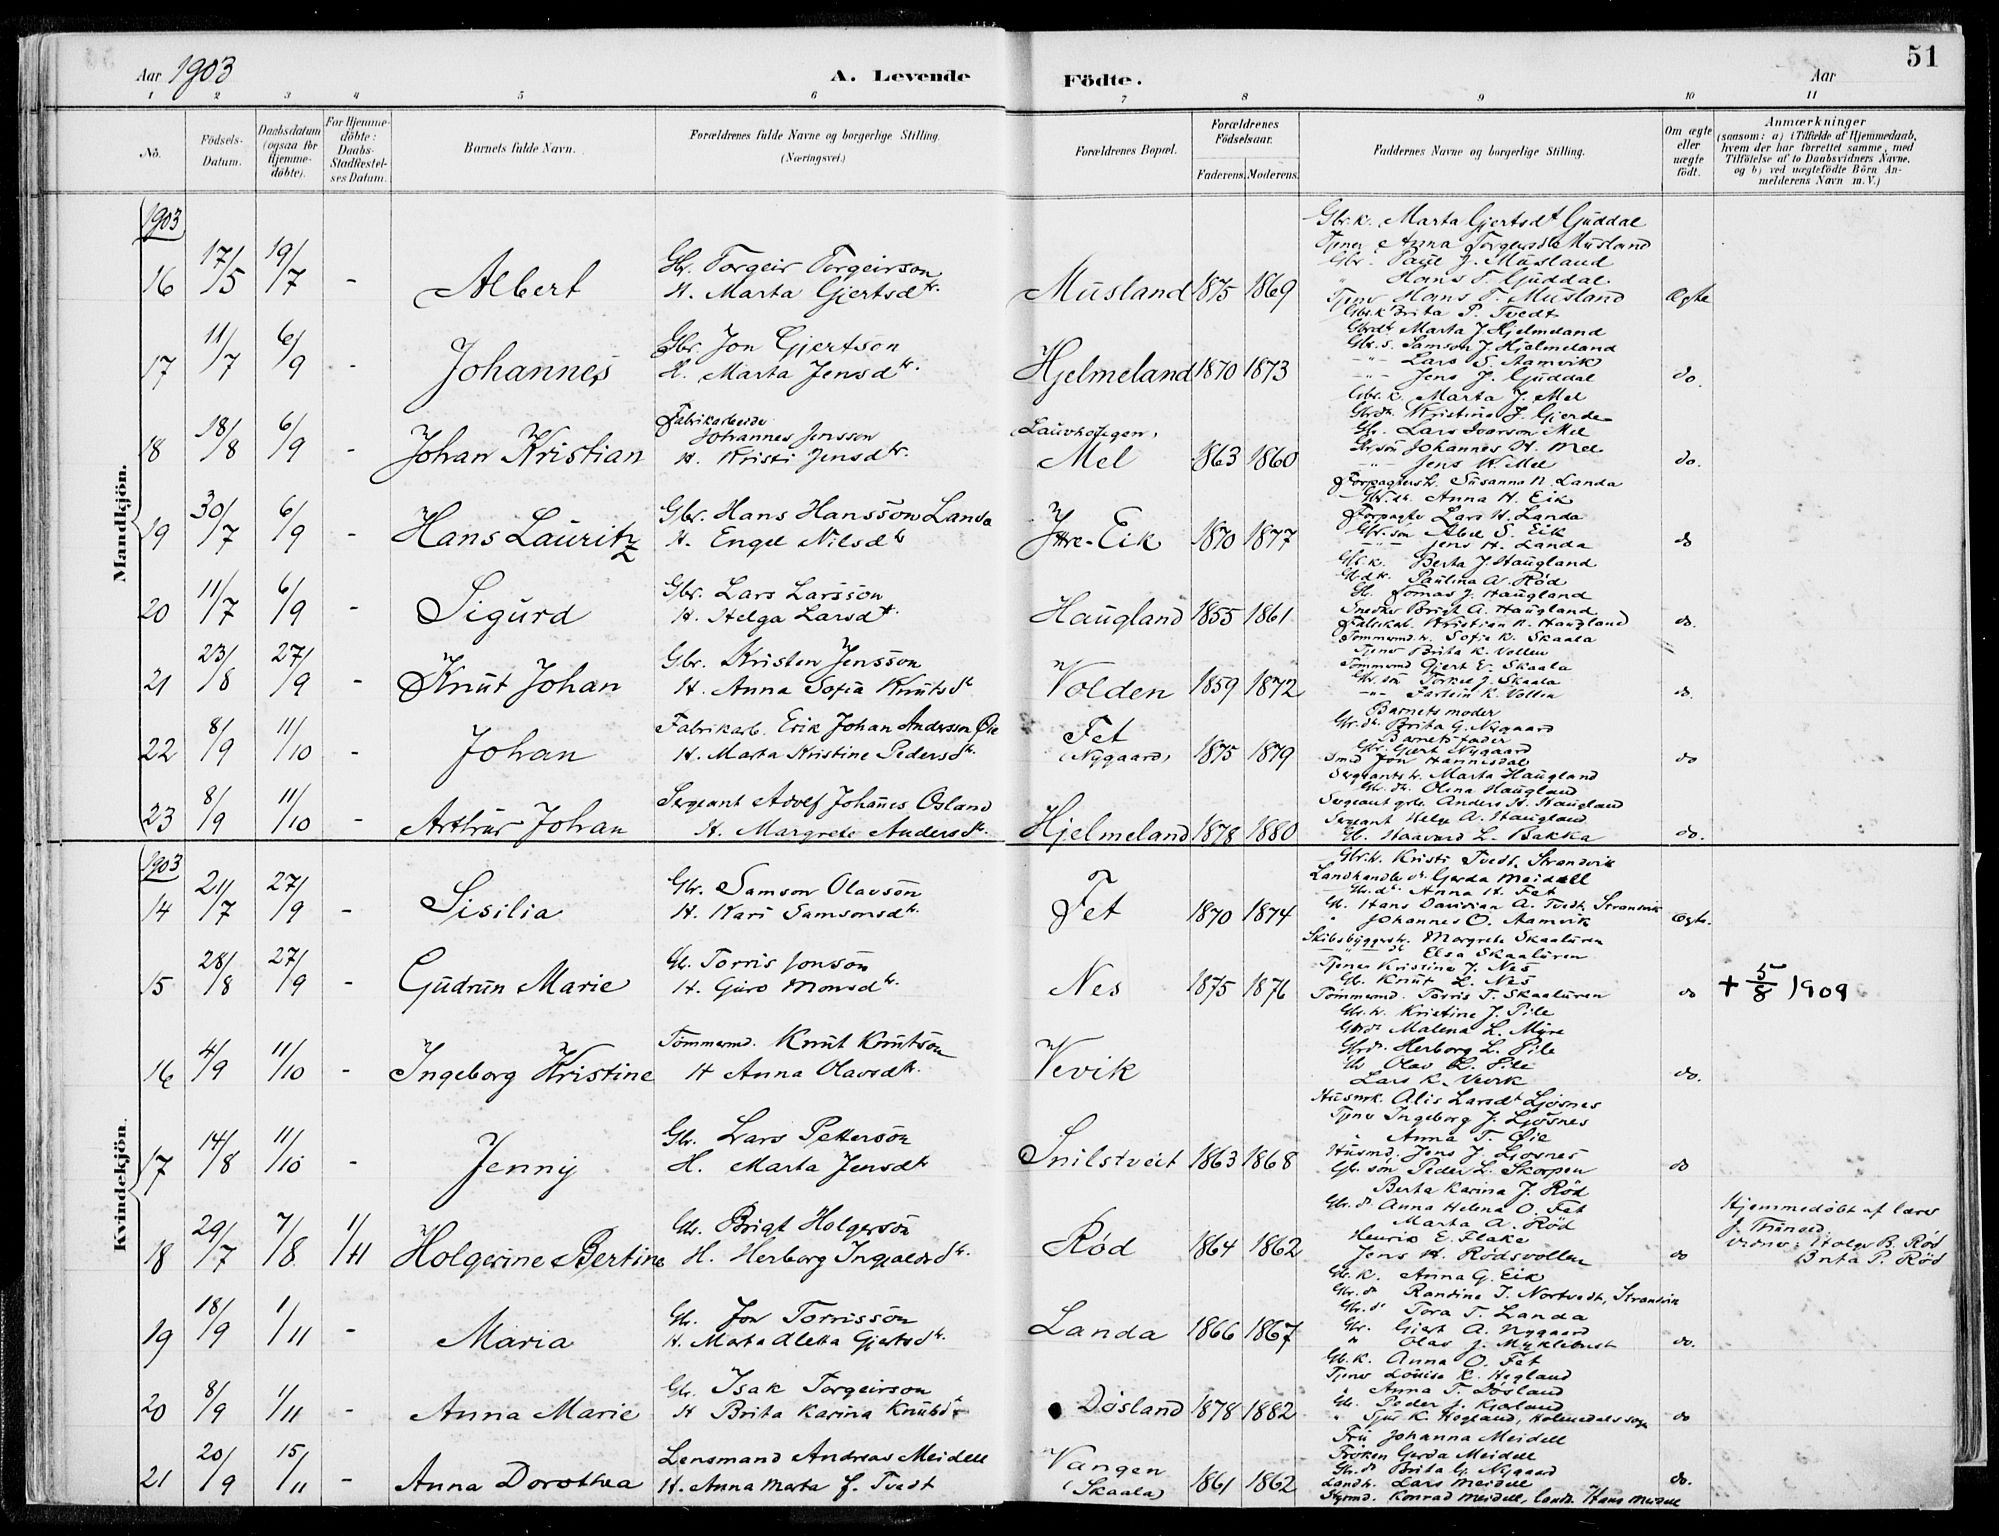 51
Aar 1903
A. Levende Födte.
Aar
1 2 3 4 5 6 7 8 9 10 11
No.
Födsels-Datum.
Daabsdatum (ogsaa för Hjemme-döbte).
For Hjemme-döbte: Daabs-Stadfæstel-ses Datum.
Barnets fulde Navn.
Forældrenes fulde Navne og borgerlige Stilling.
(Næringsvei.)
Forældrenes Bopæl.
Forældrenes Födselsaar.
Faderens. Moderens.
Faddernes Navne og borgerlige Stilling.
Om ægte eller uægte födt.
Anmærkninger
(saasom: a) i Tilfælde af Hjemmedaab,
hvem der har forrettet samme, med
Tilföielse af to Daabsvidners Navne,
og b) ved uægtefödte Börn An-
melderens Navn m. V.)
Mandkjön.
1903
16 17/5 19/7 - Albert
Gbr. Torgeir Torgeirson
H. Marta Gjertsdtr.
Musland 1875 1869
Gbr.k. Marta Gjertsdt Guddal
Tjener Anna Torgersdtr Musland
Gbr. Paul J. Musland
" Hans T. Guddal
Tjener Hans T. Musland
Ægte
17 11/7 6/9 - Johannes
Gbr. Jon Gjertson
H. Marta Jensdtr.
Hjelmeland 1870 1873
Gbr.k Brita P. Tvedt
Gbrdtr Marta J. Hjelmeland
Gbr.s. Samson J. Hjelmeland
-"- Lars S. Aamvik
-"- Jens J. Guddal
do.
18 18/8 6/9 - Johan Kristian
Fabrikarbeider
Johannes Jensson
H. Kristi Jensdtr.
Mel 1863 1860
Gbr.k. Marta J. Mel
Gbrdtr. Kristina J. Gjerde
Gbr. Lars Ivarson Mel
Gbr.søn Johannes H. Mel
-"- Jens K. Mel
do.
19 30/7 6/9 - Hans Lauritz
Gbr. Hans Hansson Landa
H. Engel Nilsdtr
Ytre-Eik 1870 1877
Forpagterk. Susanna N. Landa
Gbr.dtr. Anna H. Eik
Forpagter Lars H. Landa
Gbr.søn Abel S. Eik
-"- Jens H. Landa
do
20 11/7 6/9 - Sigurd
Gbr. Lars Larsson
H. Helga Larsdtr.
Haugland 1855 1861
Gbr.k. Berta J. Haugland
Gb.dtr. Paulina A. Rød
Gb. Tomas J. Haugland
Snedker Brigt A. Haugland
Fabrikab. Kristian K. Haugland
do.
21 23/8 27/9 - Knut Johan
Gbr. Kristen Jensson
H. Anna Sofia Knutsdtr
Volden 1859 1872
Tømmermd.k. Sofie K. Skaala
Tjener Brita K. Vollen
Tømmermd Gjert E. Skaala
Gbr.søn Torkel J. Skaala
-"- Fartein K. Vollen
do.
22 8/9 11/10 - Johan
Fabrikarb. Erik Johan Andersson Øie
H. Marta Kristine Pedersdtr.
Fet
(Nygaard) 1875 1879
Barnets moder
Gbr.dtr. Brita G. Nygaard
Barnets fader
Gbr. Gjert Nygaard
Smed Jon Hannisdal
do
23 8/9 11/10 - Arthur Johan
Sergeant Adolf Johanes Osland
H. Margrete Andersdtr.
Hjelmeland 1878 1880
Sergeants k. Marta Haugland
Gbr.dtr. Olina Haugland
Sergeant gbr. Anders H. Haugland
Sergeant Helge A. Haugland
Gb. Haavard L. Bakka
do.
Kvindekjön.
1903
14 21/7 27/9 - Sisilia
Gbr. Samson Olavson
H. Kari Samsonsdtr.
Fet 1870 1874
Gbr.k. Kristi Tvedt, Strandvik
Landhandler dtr. Gerda Meidell
Gbr.dtr. Anna H. Fet
Gb. Hans Davidian A. Tvedt, Strandvik
" Johannes O. Aamvik
Ægte.
15 28/8 27/9 - Gudrun Marie
Gb. Torris Jonson
H. Guro Monsdtr.
Nes 1875 1876
Skibsbyggerk. Margrete Skaaluren
-"- dtr Elsa Skaaluren
Tjener Kristine J. Nes
Gb. Knut L. Nes
Tømmermd. Torris T. Skaaluren
do
+ 5/8 1909
16 4/9 11/10 - Ingeborg Kristine
Tømmermd. Knut Knutson
H Anna Olavsdtr.
Vevik
Gbr.k. Kristine J. Pile
Gbrdtr Malena L. Myre
Gbrdtr. Herborg L. Pile
Gb Olav L. Pile
Lars K. Vevik
do.
17 14/8 11/10 - Jenny
Gbr. Lars Petterson
H. Marta Jensdtr
Snilstveit 1863 1868
Husmk. Alis Larsdtr Ljosnes
Tjener Ingeborg J. Ljosnes
" Anna T. Øie
Husmd. Jens J. Ljosnes
Gbr.søn Peder L. Skorpen
do
18 29/7 7/8 1/11 Holgerine Bertine
Gb. Brigt Holgerson
H. Herborg Ingjaldsdtr.
Rød 1864 1862
Berta Karina J. Rød
Gbr.dtr Anna Helena O. Fet
Marta A. Rød
Henrik E. Flake
Jens H. Rødsvollen
do
Hjemmedøbt af lærer
J. Trunæd.
vidner: Holger B. Rød
Brita P. Rød
19 18/9 1/11 - Maria
Gb. Jon Torrisson
H. Marta Aletta Gjertsdtr.
Landa 1866 1867
Gb.k. Anna G. Eik
Gbr.dtr Randine I. Nortvedt, Strandvik
Gbr.dtr Tora T. Landa
Gbr. Gjert A. Nygaard
" Olav J. Myklebust
do.
20 8/9 1/11 - Anna Marie
Gb. Isak Torgeirson
H Brita Karina Knutsdtr
Døsland 1878 1882
Gb.k. Anna O. Fet
Tjener Louise K. Hogland
" Anna T. Døsland
Gb. Peder J. Kjosland
" Sjur K. Hogland, Holmedals sogn
do
21 20/9 15/11 - Anna Dorothea
Lensmand Andreas Meidell
H. Anna Marta f. Tvedt
Vangen
(Skaala) 1861 1862
Fru Johanna Meidell
Frøken Gerda Meidell
Gbr.dtr Brita G. Nygaard
Landh. Lars Meidell
Styrmd. Konrad Meidell, Landh. Hans Meidell
do.